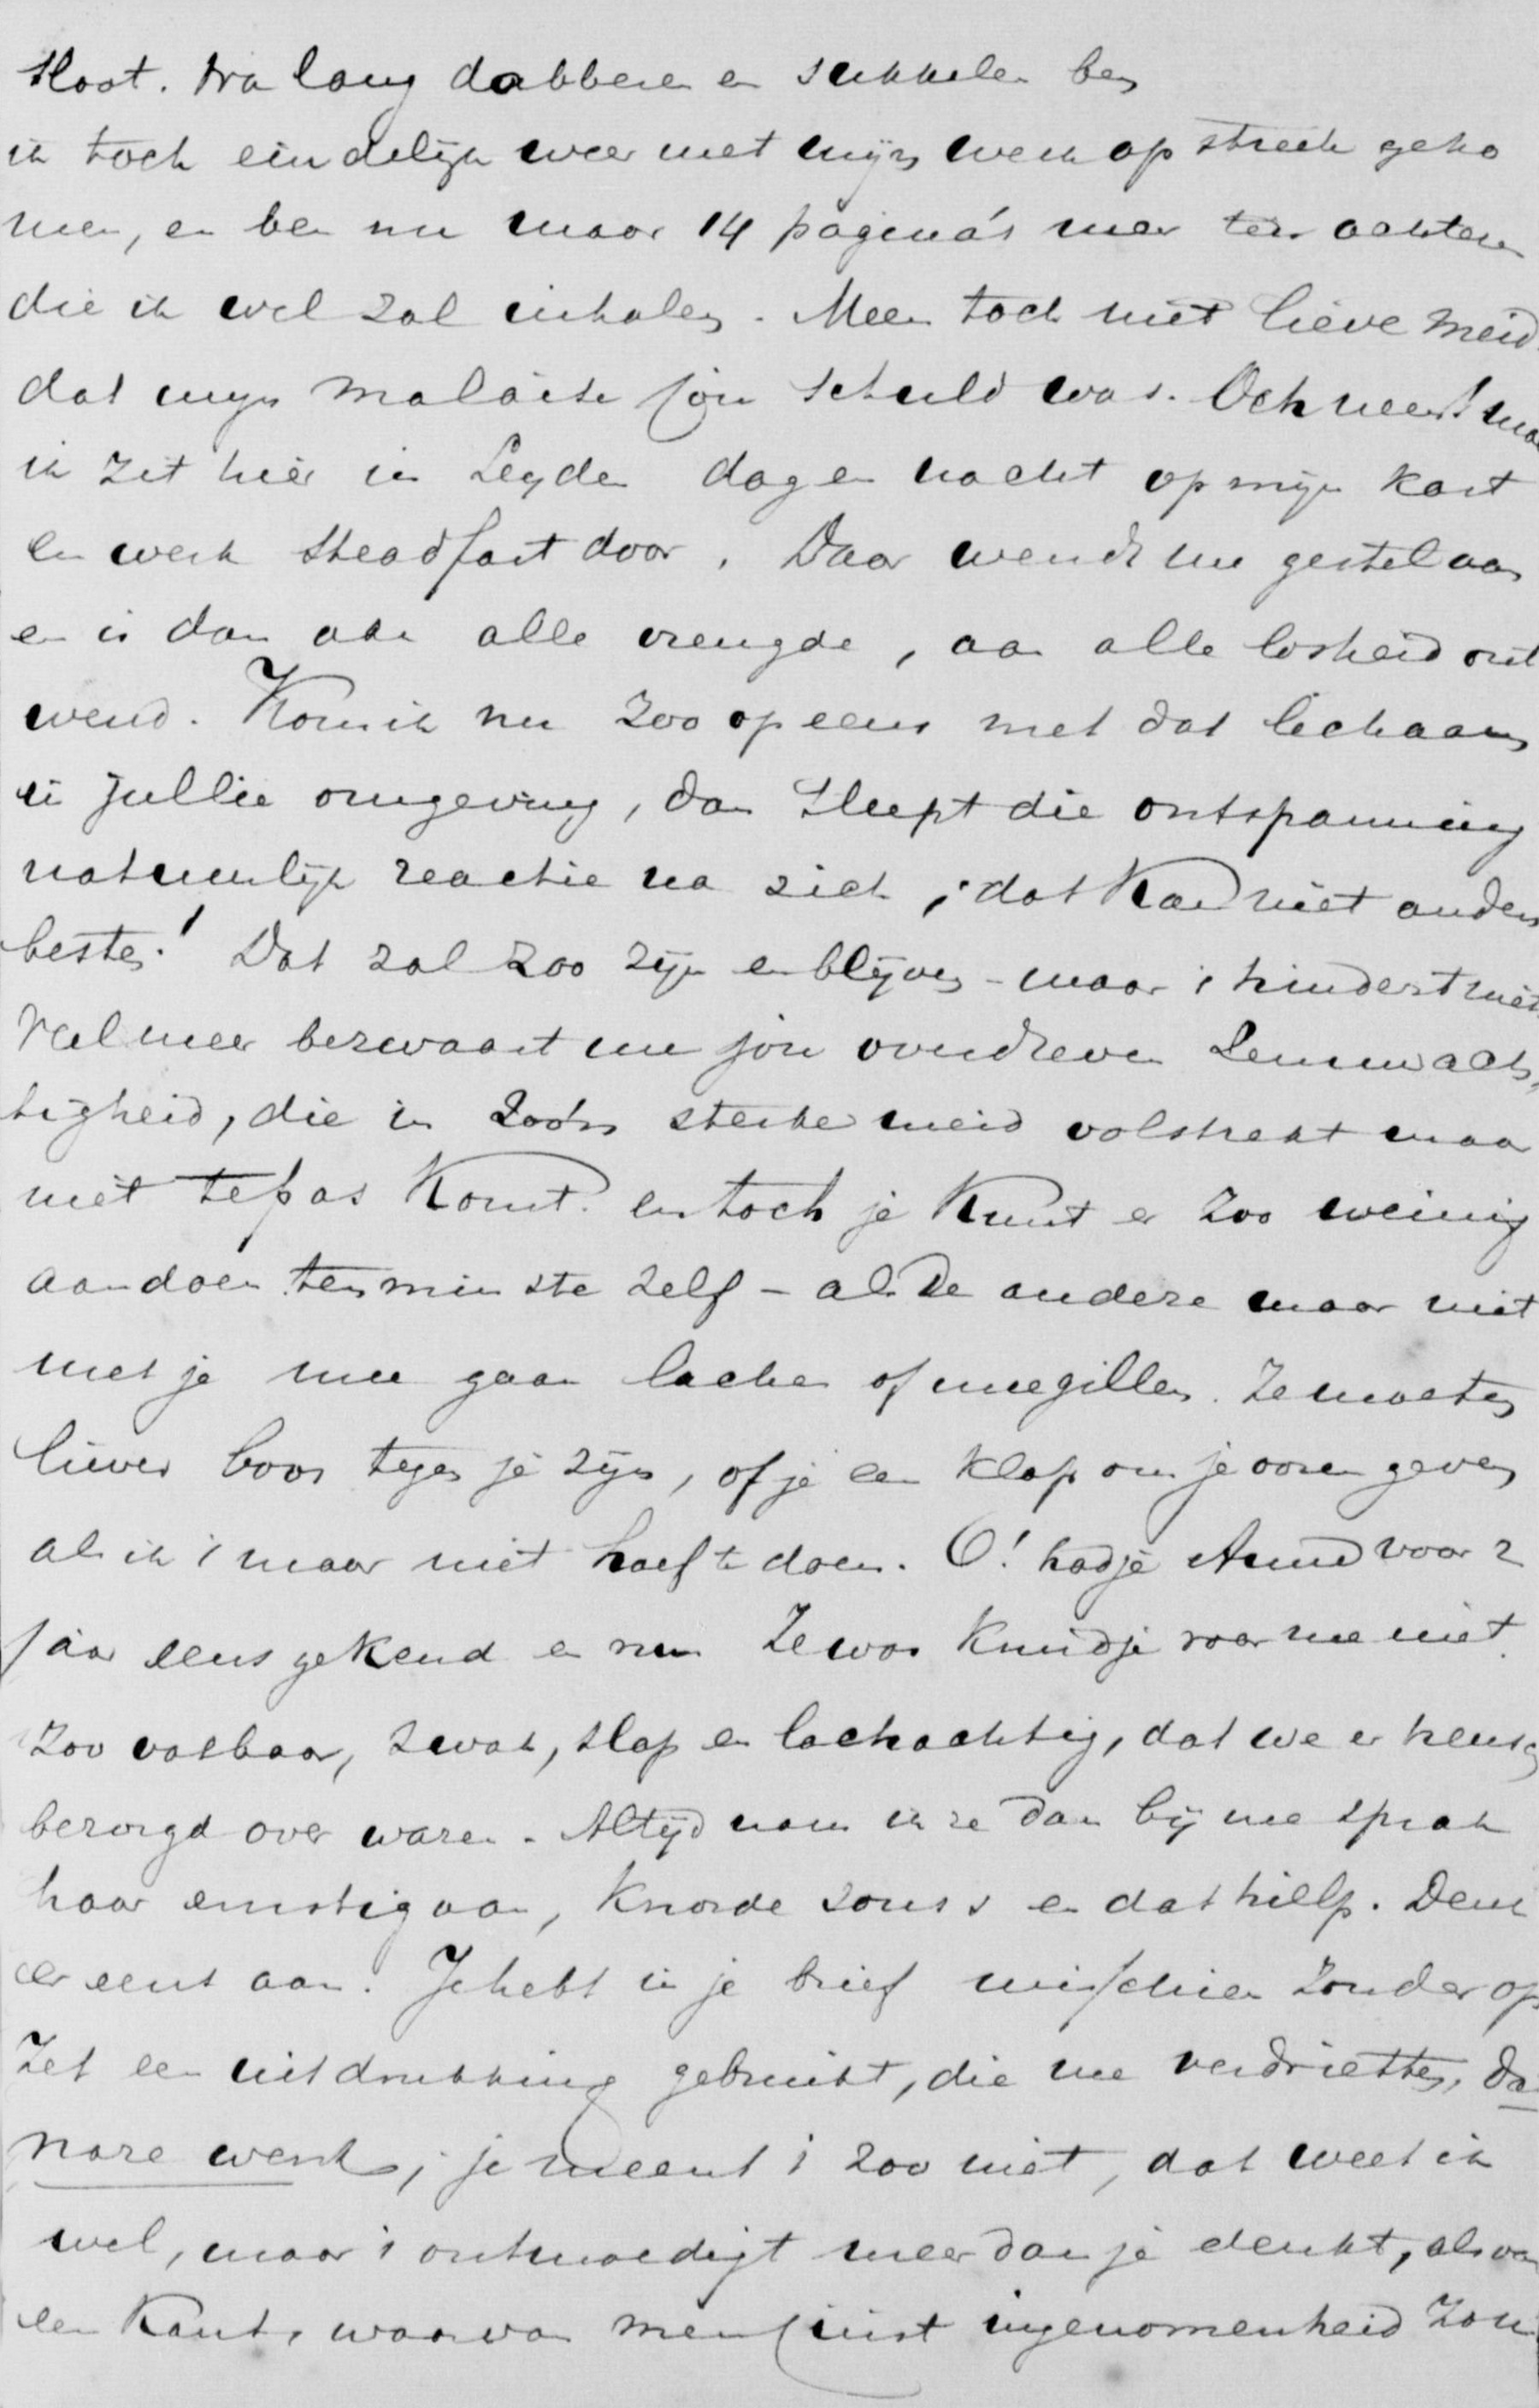 sloot. Na lang dobberen en sukkelen ben
ik toch eindelijk weer met mijn werk op streek geko
men, en ben nu maar 14 pagina's meer ten achteren
die ik wel zal inhalen. Meen toch niet lieve meid
dat mijn malaise jou schuld was. Och neen! maar
ik zit hier in Leyden dag en nacht op mijn kast
en werk steadfast door. Daar wendt me gestel aan
en is dan aan alle vreugde, aan alle losheid ont
wend. Kom ik nu zoo opeens met dat lichaam
in jullie omgeving, dan sleept die ontspanning
natuurlijk reactie na zich; dat kan niet anders
beste! Dat zal zoo zijn en blijven - maar 't hindert niet
Veel meer bezwaart me jou overdreven
tigheid, die in zoo'n sterke meid volstrekt maar
niet te pas komt. en toch je kunt er zoo weinig
aan doen ten minste zelf - als de andere maar niet
met je mee gaan lachen of meegillen. Ze moeten
liever boos tegen je zijn, of je een klap om je ooren geven
als ik 't maar niet hoef te doen. O! had je voor 2
jaar eens gekend en nu Ze was kruidje roer me niet.
Zoo vatbaar, zwak, slap en lachachtig, dat we er heusch
bezorgd over waren. Altijd nam ik ze dan bij me sprak
haar ernstig aan, knorde soms en dat hielp. Denk
er eens aan. Je hebt in je brief misschien zonder op
zet een uitdrukking gebruikt, die me verdrietten, dat
nare werk; je meent 't zoo niet, dat weet ik
wel, maar 't ontmoedigt meer dan je denkt, als van
een kant, waarvan men juist ingenomenheid zou